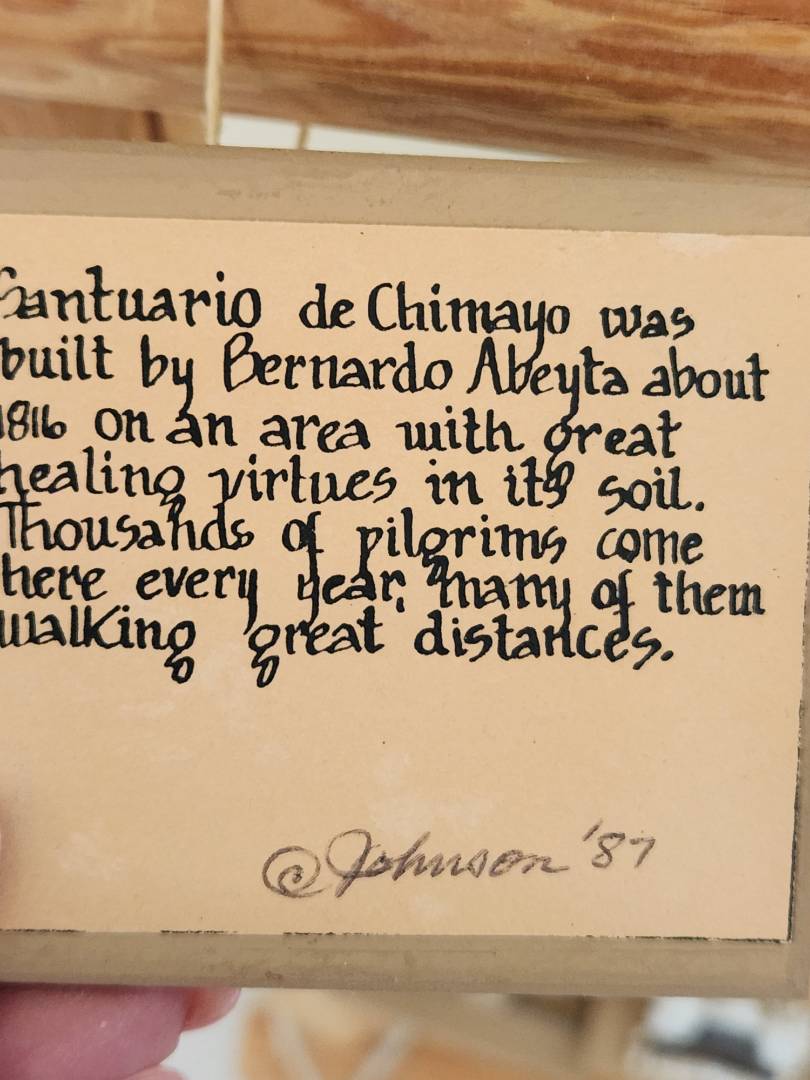 Santuario de Chimayo was
built by Bernardo Abeyta about
1816 on an area with great
healing virtues in its soil.
Thousands of pilgrims come
here every year, many of them
walking great distances.
@Johnson '87